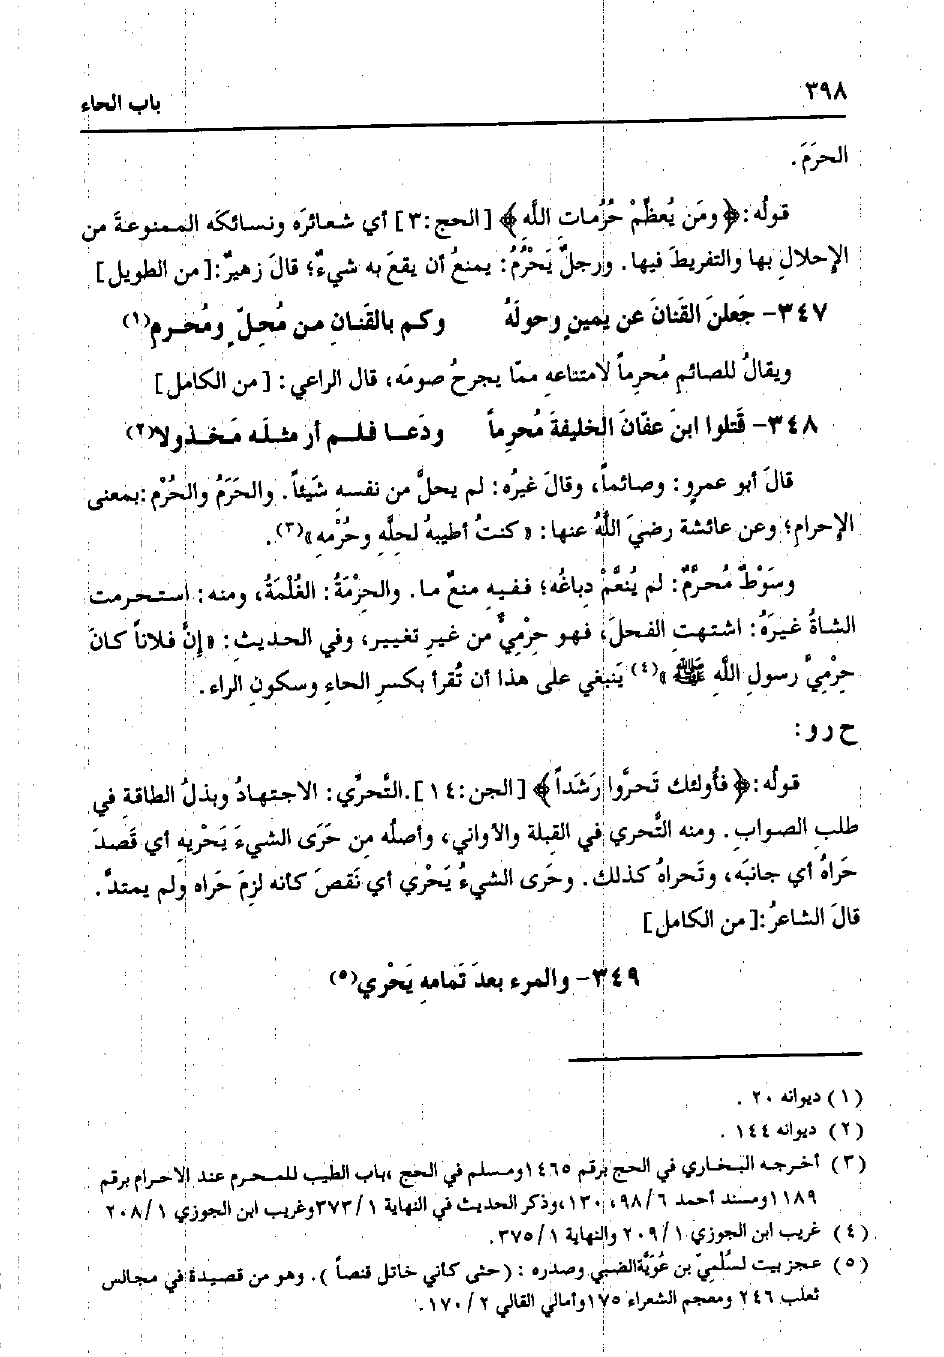 ٣٩٨
باب الحاء
الحرَمَ.
قولُه: ﴿ومَن يُعظِّمْ حُرُمات اللَّهِ﴾ [الحج:٣] أي شعائرَه ونسائكَه الممنوعةَ من
الإحلالِ بها والتفريطَ فيها. ورجلٌ يَحْرُمُ: يمنعُ أن يقعَ به شيءٌ؛ قالَ زهيرٌ:[من الطويل]
٣٤٧- جَعلنَ القَنانَ عن يمينٍ وحولَهُ وكم بالقَنانِ من مُحِلّ ٍ ومُحرمِ(١)
ويقالُ للصائمِ مُحرِماً لامتناعهِ ممّا يجرحُ صومَه، قال الراعي: [من الكامل]
٣٤٨- قَتلوا ابنَ عفّانَ الخليفةَ مُحرِماً ودَعا فلم أر مثلَه مَخذولا(٢)
قالَ أبو عمرٍو: وصائماً، وقالَ غيرُه: لم يحلَّ من نفسهِ شَيئاً. والحَرَمُ والحُرْم:بمعنى
الإحرامِ؛ وعن عائشة رضيَ اللَّهُ عنها: «كنتُ أطيبهُ لحلهِ وحُرْمهِ»(٣).
وسَوْطٌ مُحرَّمٌ: لم يُنعَّمْ دِباغُه؛ ففيهِ منعٌ ما. والحِرْمَةُ: الغُلْمَةُ، ومنه: استحرمت
الشاةُ غيرَهُ: اشتهتِ الفحلَ، فهو حِرْمِيٌّ من غيرِ تغيير، وفي الحديثِ: «إنَّ فلاناً كانَ
حِرْمِيَّ رسولِ اللَّهِ ﷺ»(٤) يَنبغي على هذا أن تُقرأ بكسرِ الحاءِ وسكونِ الراء.
ح ر و:
قولُه: ﴿فأُولئك تَحرَّوا رَشَداً﴾ [الجن:١٤].التَّحرِّي: الاجتهادُ وبذلُ الطاقةِ في
طلبِ الصوابِ. ومنه التَّحري في القِبلة والأواني، وأصلُه مِن حَرَى الشيءَ يَحْريهِ أي قَصدَ
حَراهُ أي جانبَه، وتَحراهُ كذلك. وحَرى الشيءُ يَحْري أي نَقصَ كأنه لزِمَ حَراه ولم يمتدَّ.
قالَ الشاعرُ:[من الكامل]
٣٤٩- والمرء بعدَ تَمامهِ يَحْري(٥)
(١) ديوانه ٢٠.
(٢) ديوانه ١٤٤.
(٣) أخرجه البخاري في الحج برقم ١٤٦٥ومسلم في الحج ،باب الطيب للمحرم عند الاحرام برقم
١١٨٩ومسند أحمد ٦/ ٩٨، ١٣٠،وذكر الحديث في النهاية ١/ ٣٧٣وغريب ابن الجوزي ١/ ٢٠٨
(٤) غريب ابن الجوزي ١/ ٢٠٩ والنهاية ١/ ٣٧٥.
(٥) عجز بيت لسُلْمِيّ بن عُوَيَّةالضبي وصدره : (حتى كأني خاتل قنصاً ). وهو من قصيدة في مجالس
ثعلب ٢٤٦ ومعجم الشعراء ١٧٥وأمالي القالي ٢/ ١٧٠.